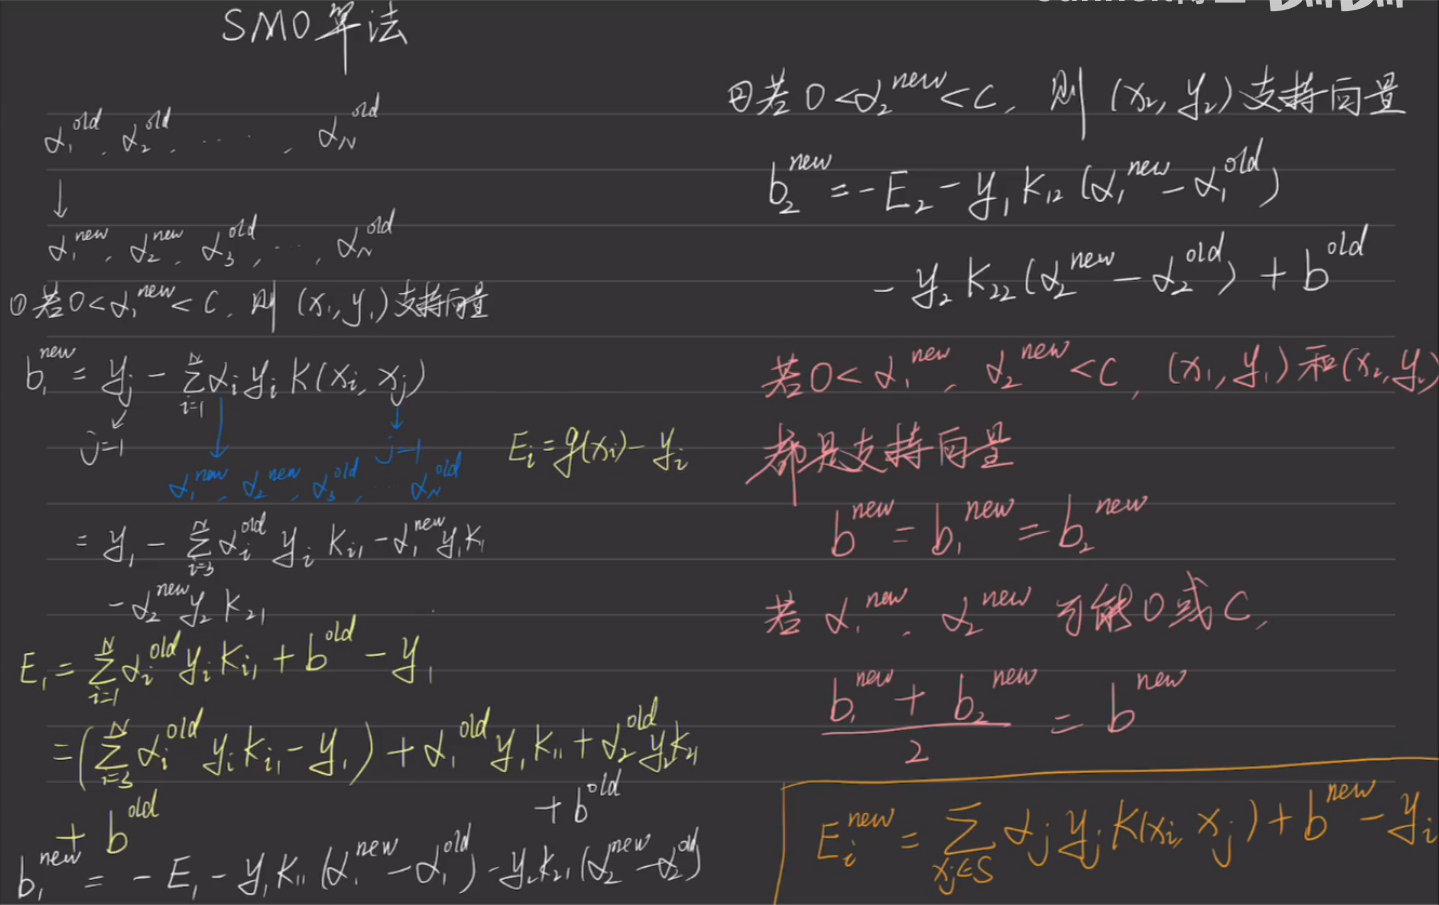 SMO算法
α₁^old, α₂^old, ……, α_N^old
↓
α₁^new, α₂^new, α₃^old, …, α_N^old
① 若0<α₁^new<C, 则 (x₁, y₁)支持向量
b₁^new = y_j - Σ_{i=1}^N α_i y_i K(x_i, x_j)
j=1
j=1
α₁^new, α₂^new, α₃^old, … α_N^old
E_i = g(x_i) - y_i
= y₁ - Σ_{i=3}^N α_i^old y_i K_{i1} - α₁^new y₁ K₁
- α₂^new y₂ K₂₁
E₁ = Σ_{i=1}^N α_i^old y_i K_{i1} + b^old - y₁
= (Σ_{i=3}^N α_i^old y_i K_{i1} - y₁) + α₁^old y₁ K₁₁ + α₂^old y₂ K₂₁
+ b^old
b₁^new = - E₁ - y₁ K₁₁ (α₁^new - α₁^old) - y₂ K₂₁ (α₂^new - α₂^old)
+ b^old
② 若 0<α₂^new<C, 则 (x₂, y₂)支持向量
b₂^new = - E₂ - y₁ K₁₂ (α₁^new - α₁^old)
- y₂ K₂₂ (α₂^new - α₂^old) + b^old
若0<α₁^new, α₂^new<C, (x₁, y₁)和(x₂, y₂)
都是支持向量
b^new = b₁^new = b₂^new
若 α₁^new, α₂^new 可能0或C,
(b₁^new + b₂^new)/2 = b^new
E_i^new = Σ_{x_j∈S} α_j y_j K(x_i, x_j) + b^new - y_i